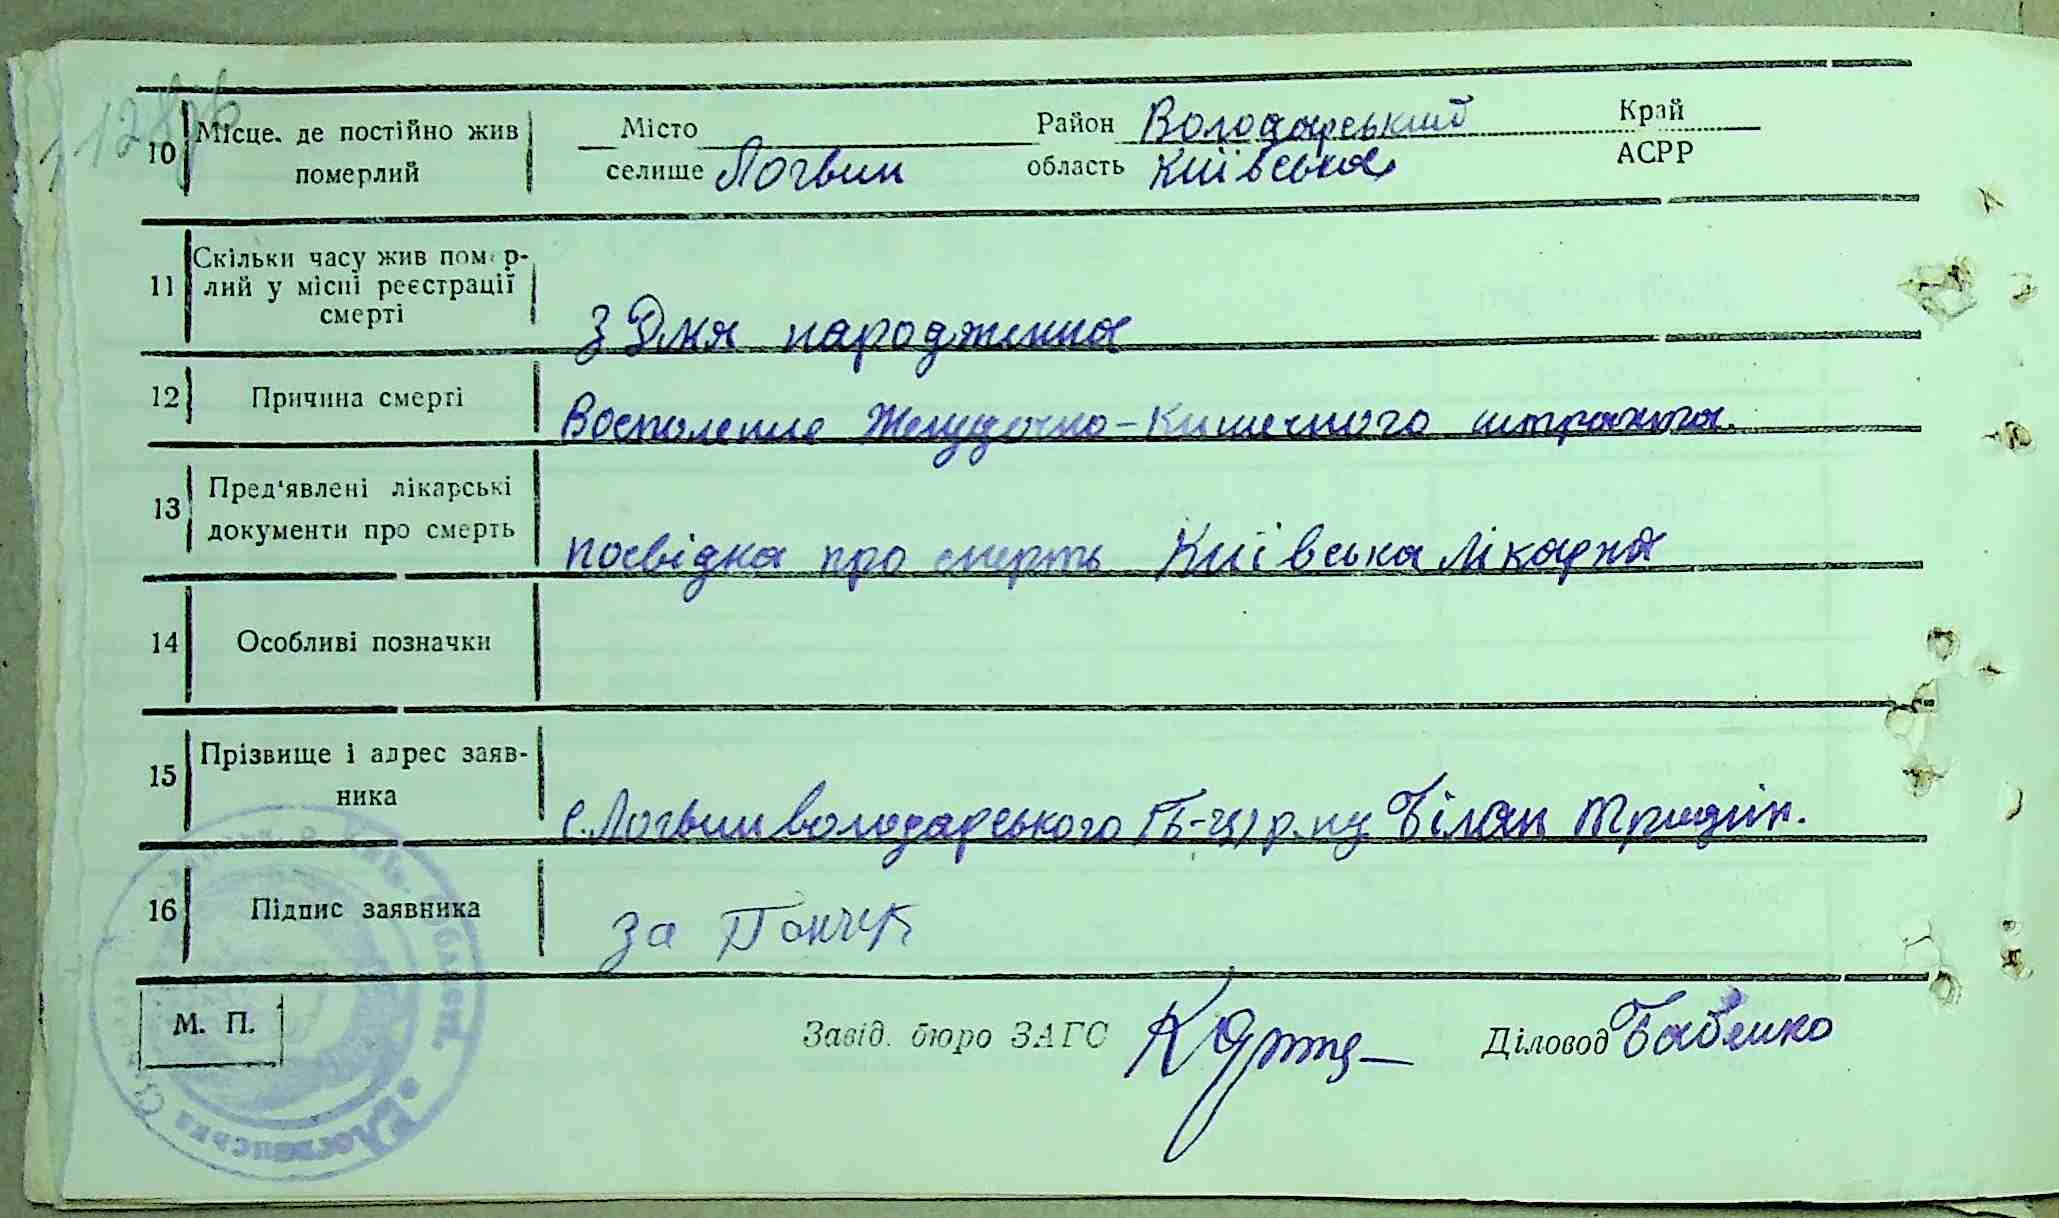 128зв
10 Місце, де постійно жив померлий
Місто селище Логвин
Район Володарський
область Київська
Край АСРР
11 Скільки часу жив помер-
лий у місці реєстрації
смерті
З Дня народження
12 Причина смерті
Восполение Желудочно-Кишечного штракта.
13 Пред'явлені лікарські
документи про смерть
посвідка про смерть Київська лікарня
14 Особливі позначки
15 Прізвище і адрес заяв-
ника
с. Логвин володарського Білан
16 Підпис заявника
за
М. П.
Завід. бюро ЗАГС
Діловод Бабенко